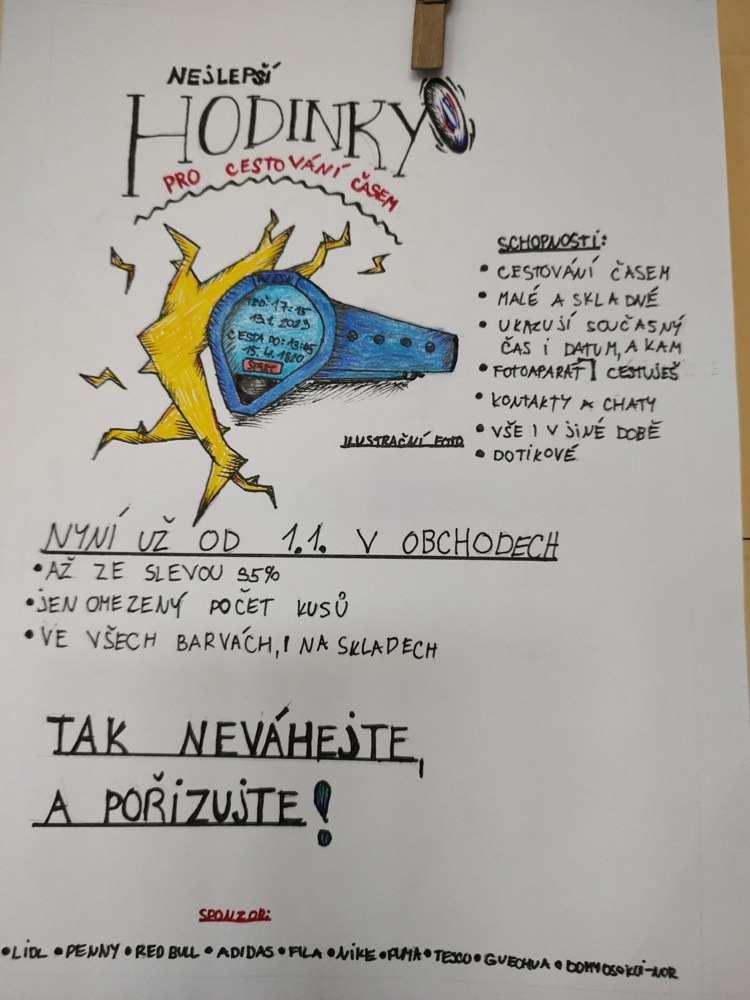 NEJLEPŠÍ
HODINKY
PRO CESTOVÁNÍ ČASEM
TEĎ: 17:15
13.1. 2023
CESTA DO: 13:05
15.4. 1820
START
SCHOPNOSTI:
• CESTOVÁNÍ ČASEM
• MALÉ A SKLADNÉ
• UKAZUJÍ SOUČASNÝ
ČAS I DATUM, A KAM
CESTUJEŠ
• FOTOAPARÁT
• KONTAKTY A CHATY
• VŠE I V JINÉ DOBĚ
• DOTIKOVÉ
ILUSTRAČNÍ FOTO
NYNÍ UŽ OD 1.1. V OBCHODECH
• AŽ ZE SLEVOU 35%
• JEN OMEZENÝ POČET KUSŮ
• VE VŠECH BARVÁCH, I NA SKLADECH
TAK NEVÁHEJTE,
A POŘIZUJTE!
SPONZOR:
• LIDL • PENNY • RED BULL • ADIDAS • FILA • NIKE • PUMA • TESCO • GUECHUA •